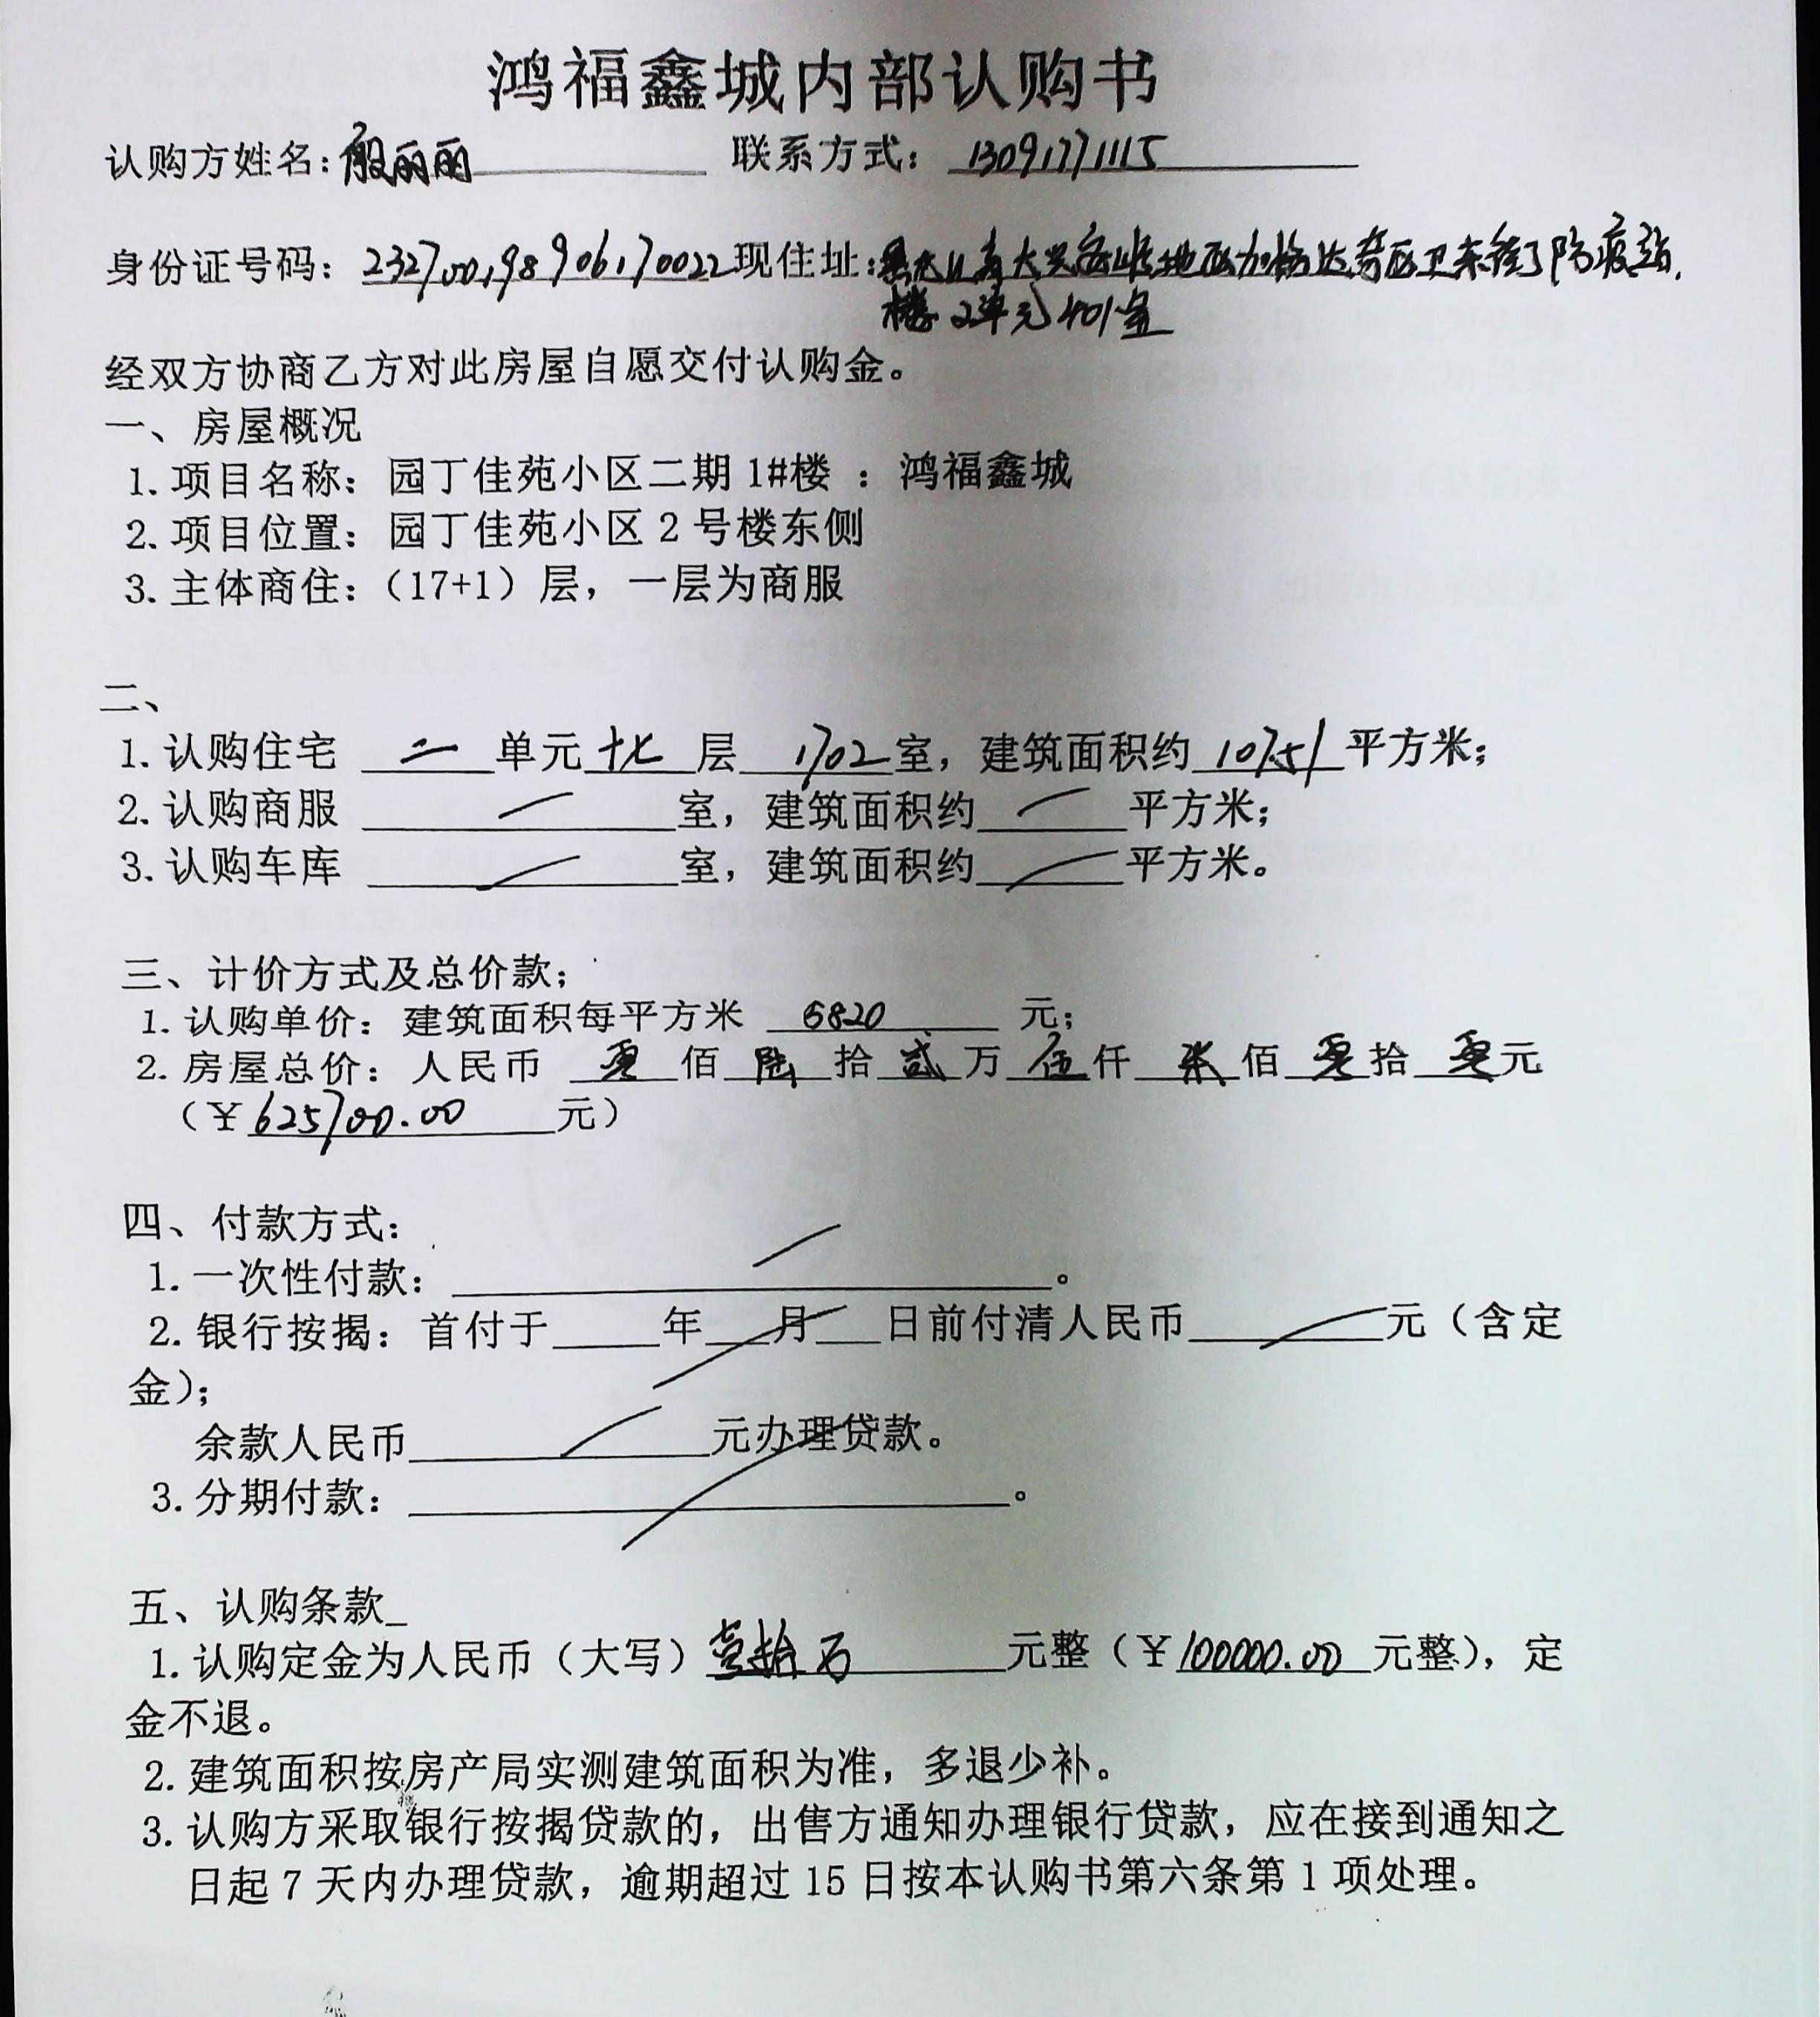 鸿福鑫城内部认购书
认购方姓名：殷丽丽 联系方式： 13091771115
身份证号码： 232700198906170022 现住址：黑龙江省大兴安岭地区加格达奇区卫东街防疫站
楼2单元401室
经双方协商乙方对此房屋自愿交付认购金。
一、房屋概况
1.项目名称：园丁佳苑小区二期1#楼 ：鸿福鑫城
2.项目位置：园丁佳苑小区2号楼东侧
3.主体商住：（17+1）层，一层为商服
二、
1.认购住宅 二 单元 十七 层 1702 室，建筑面积约 107.51 平方米；
2.认购商服 室，建筑面积约 平方米；
3.认购车库 室，建筑面积约 平方米。
三、计价方式及总价款；
1.认购单价：建筑面积每平方米 5820 元；
2.房屋总价：人民币 零 佰 陆 拾 贰 万 伍 仟 柒 佰 零 拾 零 元
（￥625700.00 元）
四、付款方式：
1.一次性付款： 。
2.银行按揭：首付于 年 月 日前付清人民币 元（含定
金）；
余款人民币 元办理贷款。
3.分期付款： 。
五、认购条款_
1.认购定金为人民币（大写）壹拾万 元整（￥100000.00 元整），定
金不退。
2.建筑面积按房产局实测建筑面积为准，多退少补。
3.认购方采取银行按揭贷款的，出售方通知办理银行贷款，应在接到通知之
日起7天内办理贷款，逾期超过15日按本认购书第六条第1项处理。